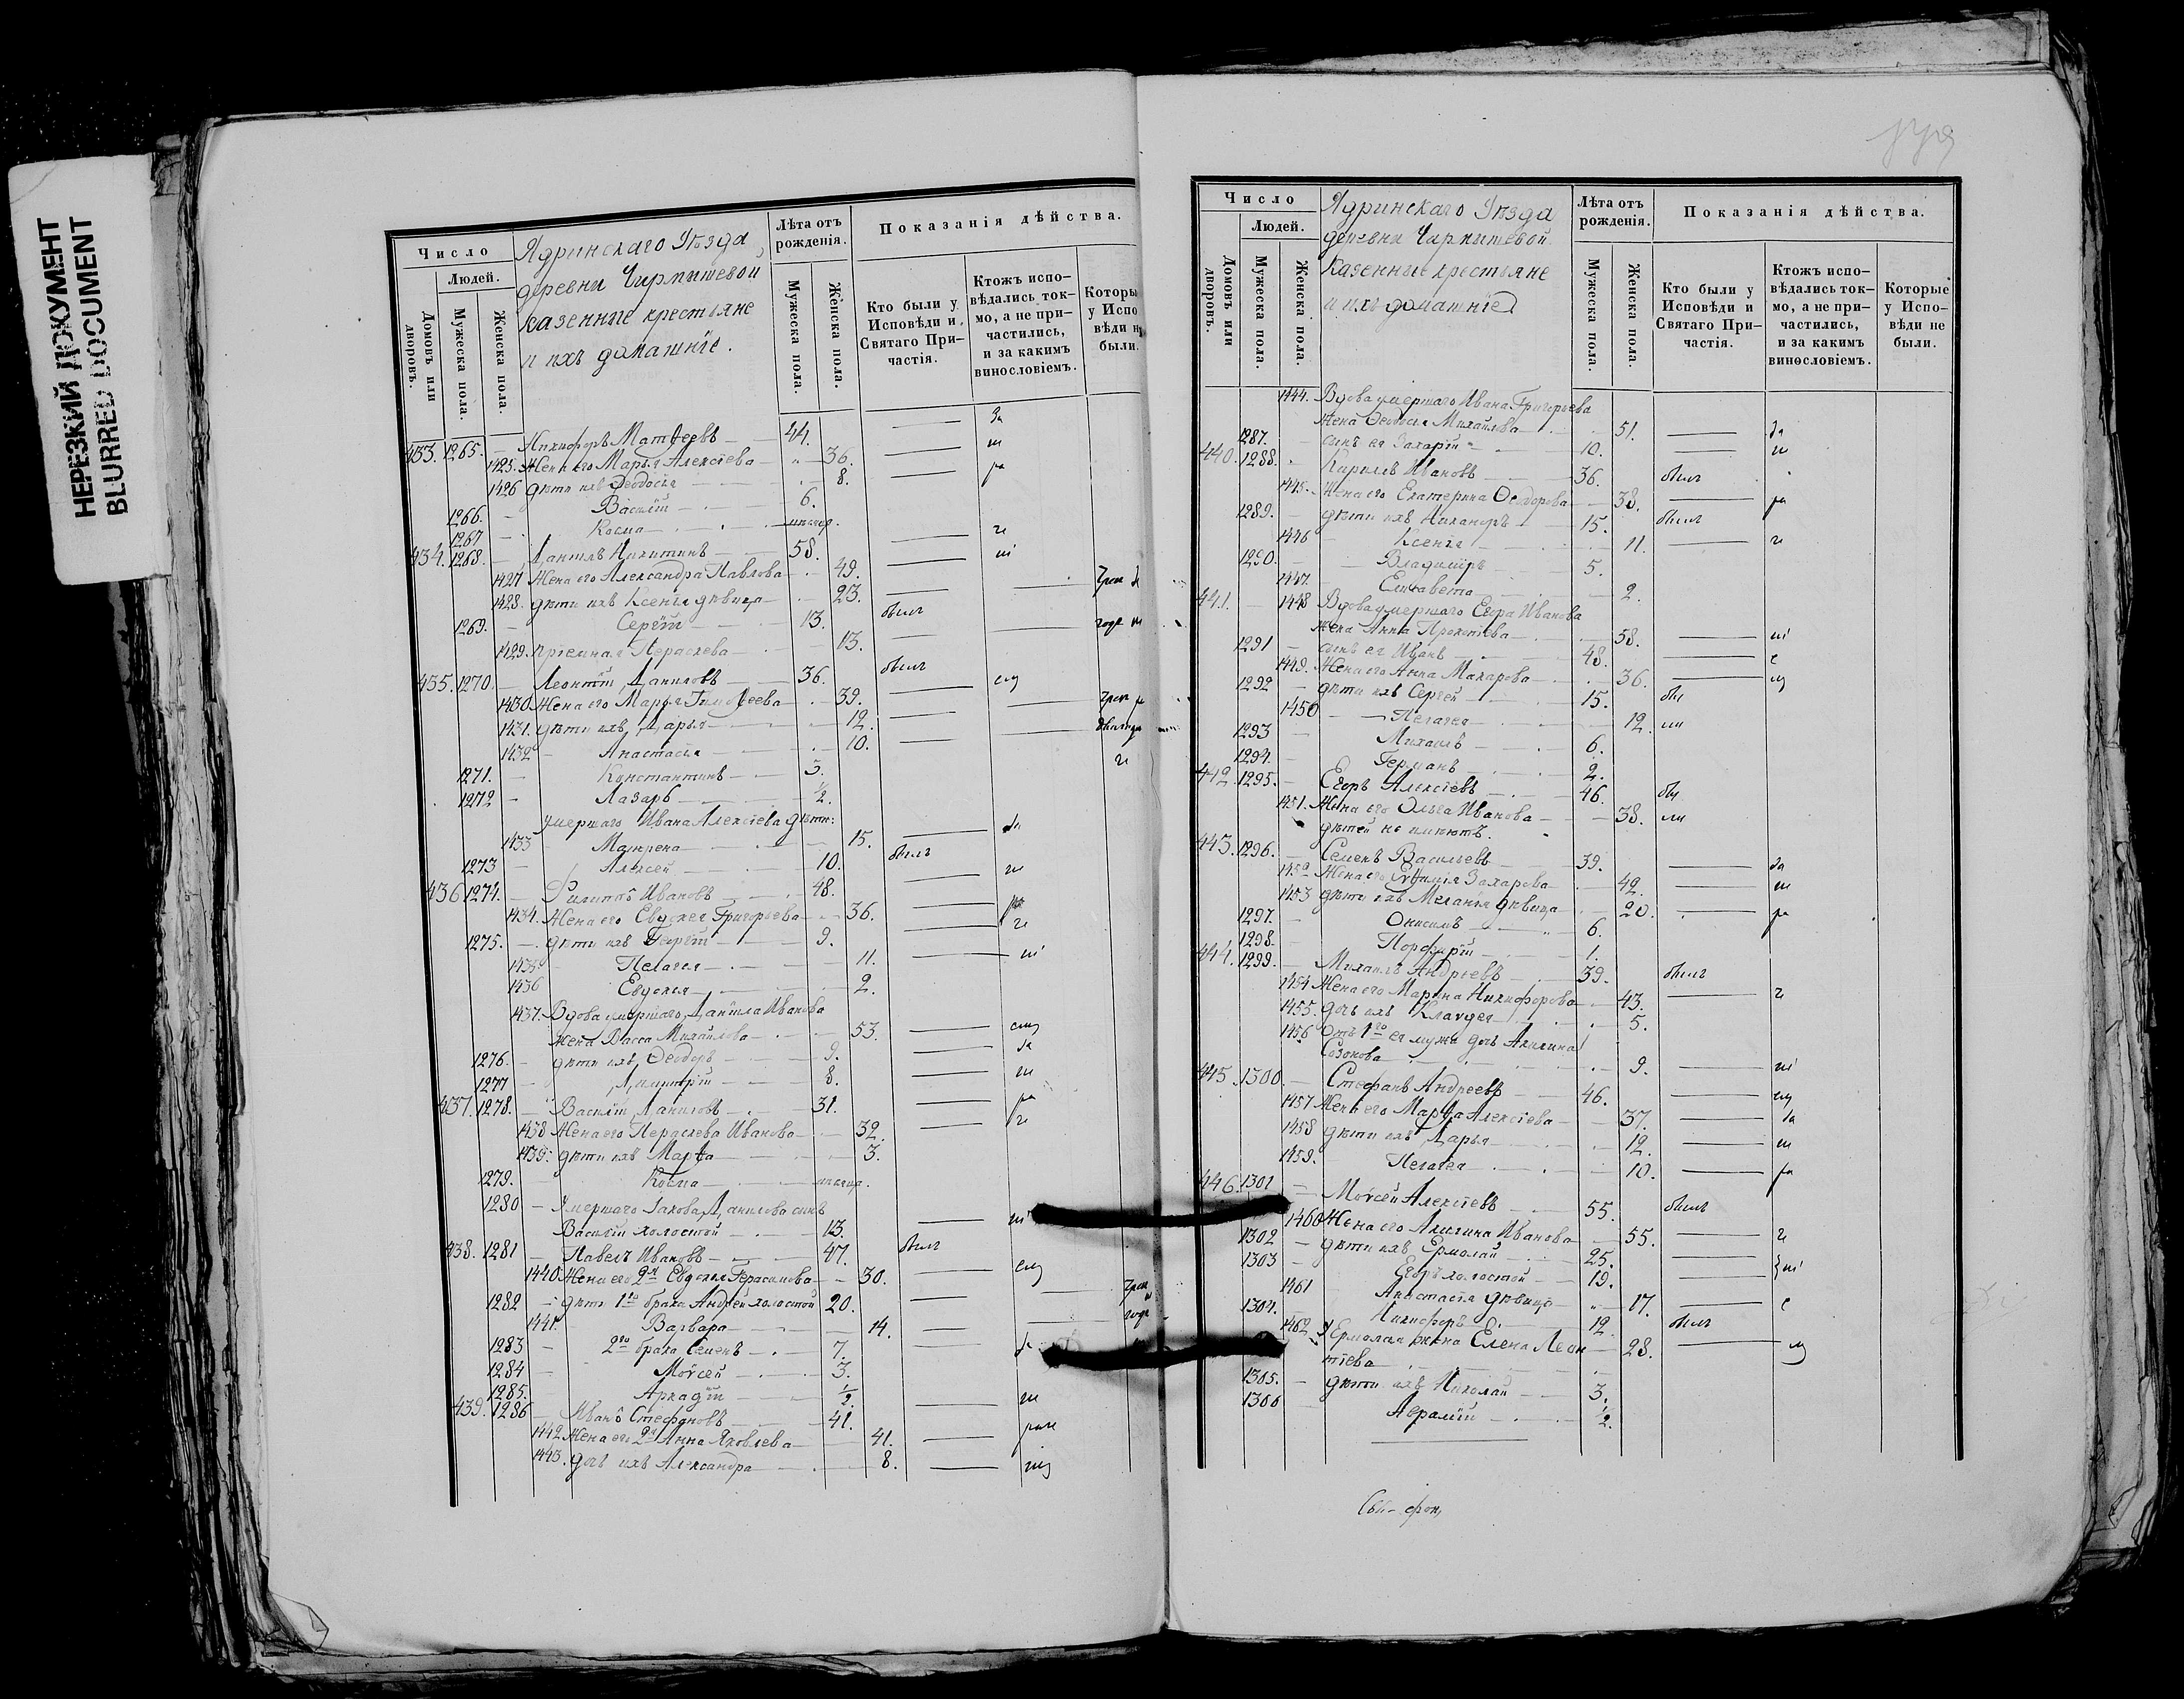 НЕРЕЗКИЙ ДОКУМЕНТ
BLURRED DOCUMENT
Число
Людей.
Домовъ или дворовъ.
Мужеска пола.
Женска пола.
Ядринскаго Уѣзда
деревни Чирпышевой
казенные крестьяне
и ихъ домашніе.
Лѣта отъ рожденія.
Мужеска пола
Женска пола.
Показанія дѣйства.
Кто были у Исповѣди и Святаго Причастія.
Ктожъ исповѣдались токмо, а не причастились, и за какимъ винословіемъ.
Которы
у Испо
вѣди н
были.
433. 1265. — Никифоръ Матѳеевъ — 44. — За
1425. Жена его Марья Алексіева — 36. — ш
1426 дѣти ихъ Ѳеодосія — 8. — ра
1266. — Василій — 6.
1267 — Косма — младен.
434. 1268. — Даніилъ Никитинъ — 58. — че
1427 Жена его Александра Павлова — 49. — ні
1428. дѣти ихъ Ксенія дѣвица — 23. —
1269. — Сергій — 13. былъ
1429. пріемная Параскева — 13. —
435. 1270. — Леонтій Даниловъ — 36. былъ
1430 Жена его Марья Тимоѳеева — 39. —
1431. дѣти ихъ, Дарья — 12. —
1432 — Анастасія — 10. —
1271. — Константинъ — 5.
1272 — Лазарь — 1/2.
умершаго Ивана Алексіева дѣти:
1433 Матрена — 15. — за
1273 — Алексей — 10. былъ
436 1274. — Филиппъ Ивановъ — 48. —
1434. Жена его Евдокея Григорьева — 36. — ра
1275. — дѣти ихъ Георгій — 9. — че
1435 — Пелагея — 11. — ні
1436 Евдокея — 2.
1437. Вдова умершаго, Даніила Иванова
жена Васса Михайлова — 53. —
1276. — дѣти ихъ, Ѳеодоръ — 9. — за
1277 — Димитрій — 8. —
437. 1278. — Василій Даниловъ — 31. — ра
1438 Жена его Параскева Иванова — 32. — че
1439. дѣти ихъ Марѳа — 3.
1279. — Косма — младен.
1280 — Умершаго Іакова Данилова сынъ
Василій холостой — 43. — ні
438. 1281 — Павелъ Ивановъ — 47. былъ
1440. Жена его 2я Евдокея Герасимова — 30. —
1282 — дѣти 1го брака Андрей холостой 20. —
1441. Варвара — 14. —
1283 — 2го брака Семенъ — 7.
1284 — Моѵсей — 3.
1285. Аркадій — 1/2.
439. 1286 — Иванъ Стефановъ — 41. —
1442 Жена его 2я Анна Яковлева — 41. —
1443. дочь ихъ Александра — 8. —
Число
Людей.
Домовъ или дворовъ.
Мужеска пола.
Женска пола.
Ядринскаго Уѣзда
деревни Чирпышевой
казенные крестьяне
и ихъ домашніе
Лѣта отъ рожденія.
Мужеска пола
Женска пола.
Показанія дѣйства.
Кто были у Исповѣди и Святаго Причастія.
Ктожъ исповѣдались токмо, а не причастились, и за какимъ винословіемъ.
Которые у Исповѣди не были.
1444. Вдова умершаго Ивана Григорьева
жена Ѳеодосія Михайлова — 51. — За
1287. — сынъ ея Захарій — 10. —
440. 1288. — Кириллъ Ивановъ — 36. былъ
1445. Жена его Екатерина Ѳеодорова — 38. — ра
1289. — дѣти ихъ Никаноръ — 15. былъ
1446 Ксенія — 11. — че
1290. — Владиміръ — 5.
1447. Елисавета — 2.
441. — 1448 Вдова умершаго Егора Иванова
жена Анна Прокопіева — 58. — ні
1291 — сынъ ея Иванъ — 48. — е
1449. Жена его Анна Макарова — 36. —
1292 — дѣти ихъ Сергей — 15. бы
1450 — Пелагея — 12. ли
1293 — Михаилъ — 6.
1294. — Германъ — 2.
442. 1295. — Егоръ Алексіевъ — 46. бы
1451. Жена его Ольга Иванова — 38. ли
дѣтей не имѣютъ.
443. 1296. — Семенъ Васильевъ — 39. — за
1452 Жена его Евѳимія Захарова — 42. —
1453 дѣти ихъ Меланія дѣвица — 20. — ра
1297. — Онисимъ — 6.
1298. — Порфирій — 1.
444. 1299. — Михаилъ Андреевъ — 39. былъ
1454 Жена его Марина Никифорова — 43. — че
1455. дочь ихъ Клавдея — 5.
1456 Отъ 1го ея мужа дочь Акилина
Созонова — 9. — ні
445. 1300. — Стефанъ Андреевъ — 46. —
1457 Жена его Марѳа Алексіева — 37. — за
1458 дѣти ихъ Дарья — 12. —
1459. Пелагея — 10. — ра
446. 1301 — Моѵсей Алексіевъ — 55. былъ
1460 Жена его Акилина Иванова — 55. — че
1302 — дѣти ихъ Ермолай — 25. —
1303 — Егоръ холостой — 19. — ні
1461 — Анастасія дѣвица — 17. — е
1304. — Никифоръ — 12. былъ
1462 Ермолая жена Елена Леон — 28. —
тіева
1305. — дѣти ихъ Николай — 3.
1306 — Аврамій — 1/2.